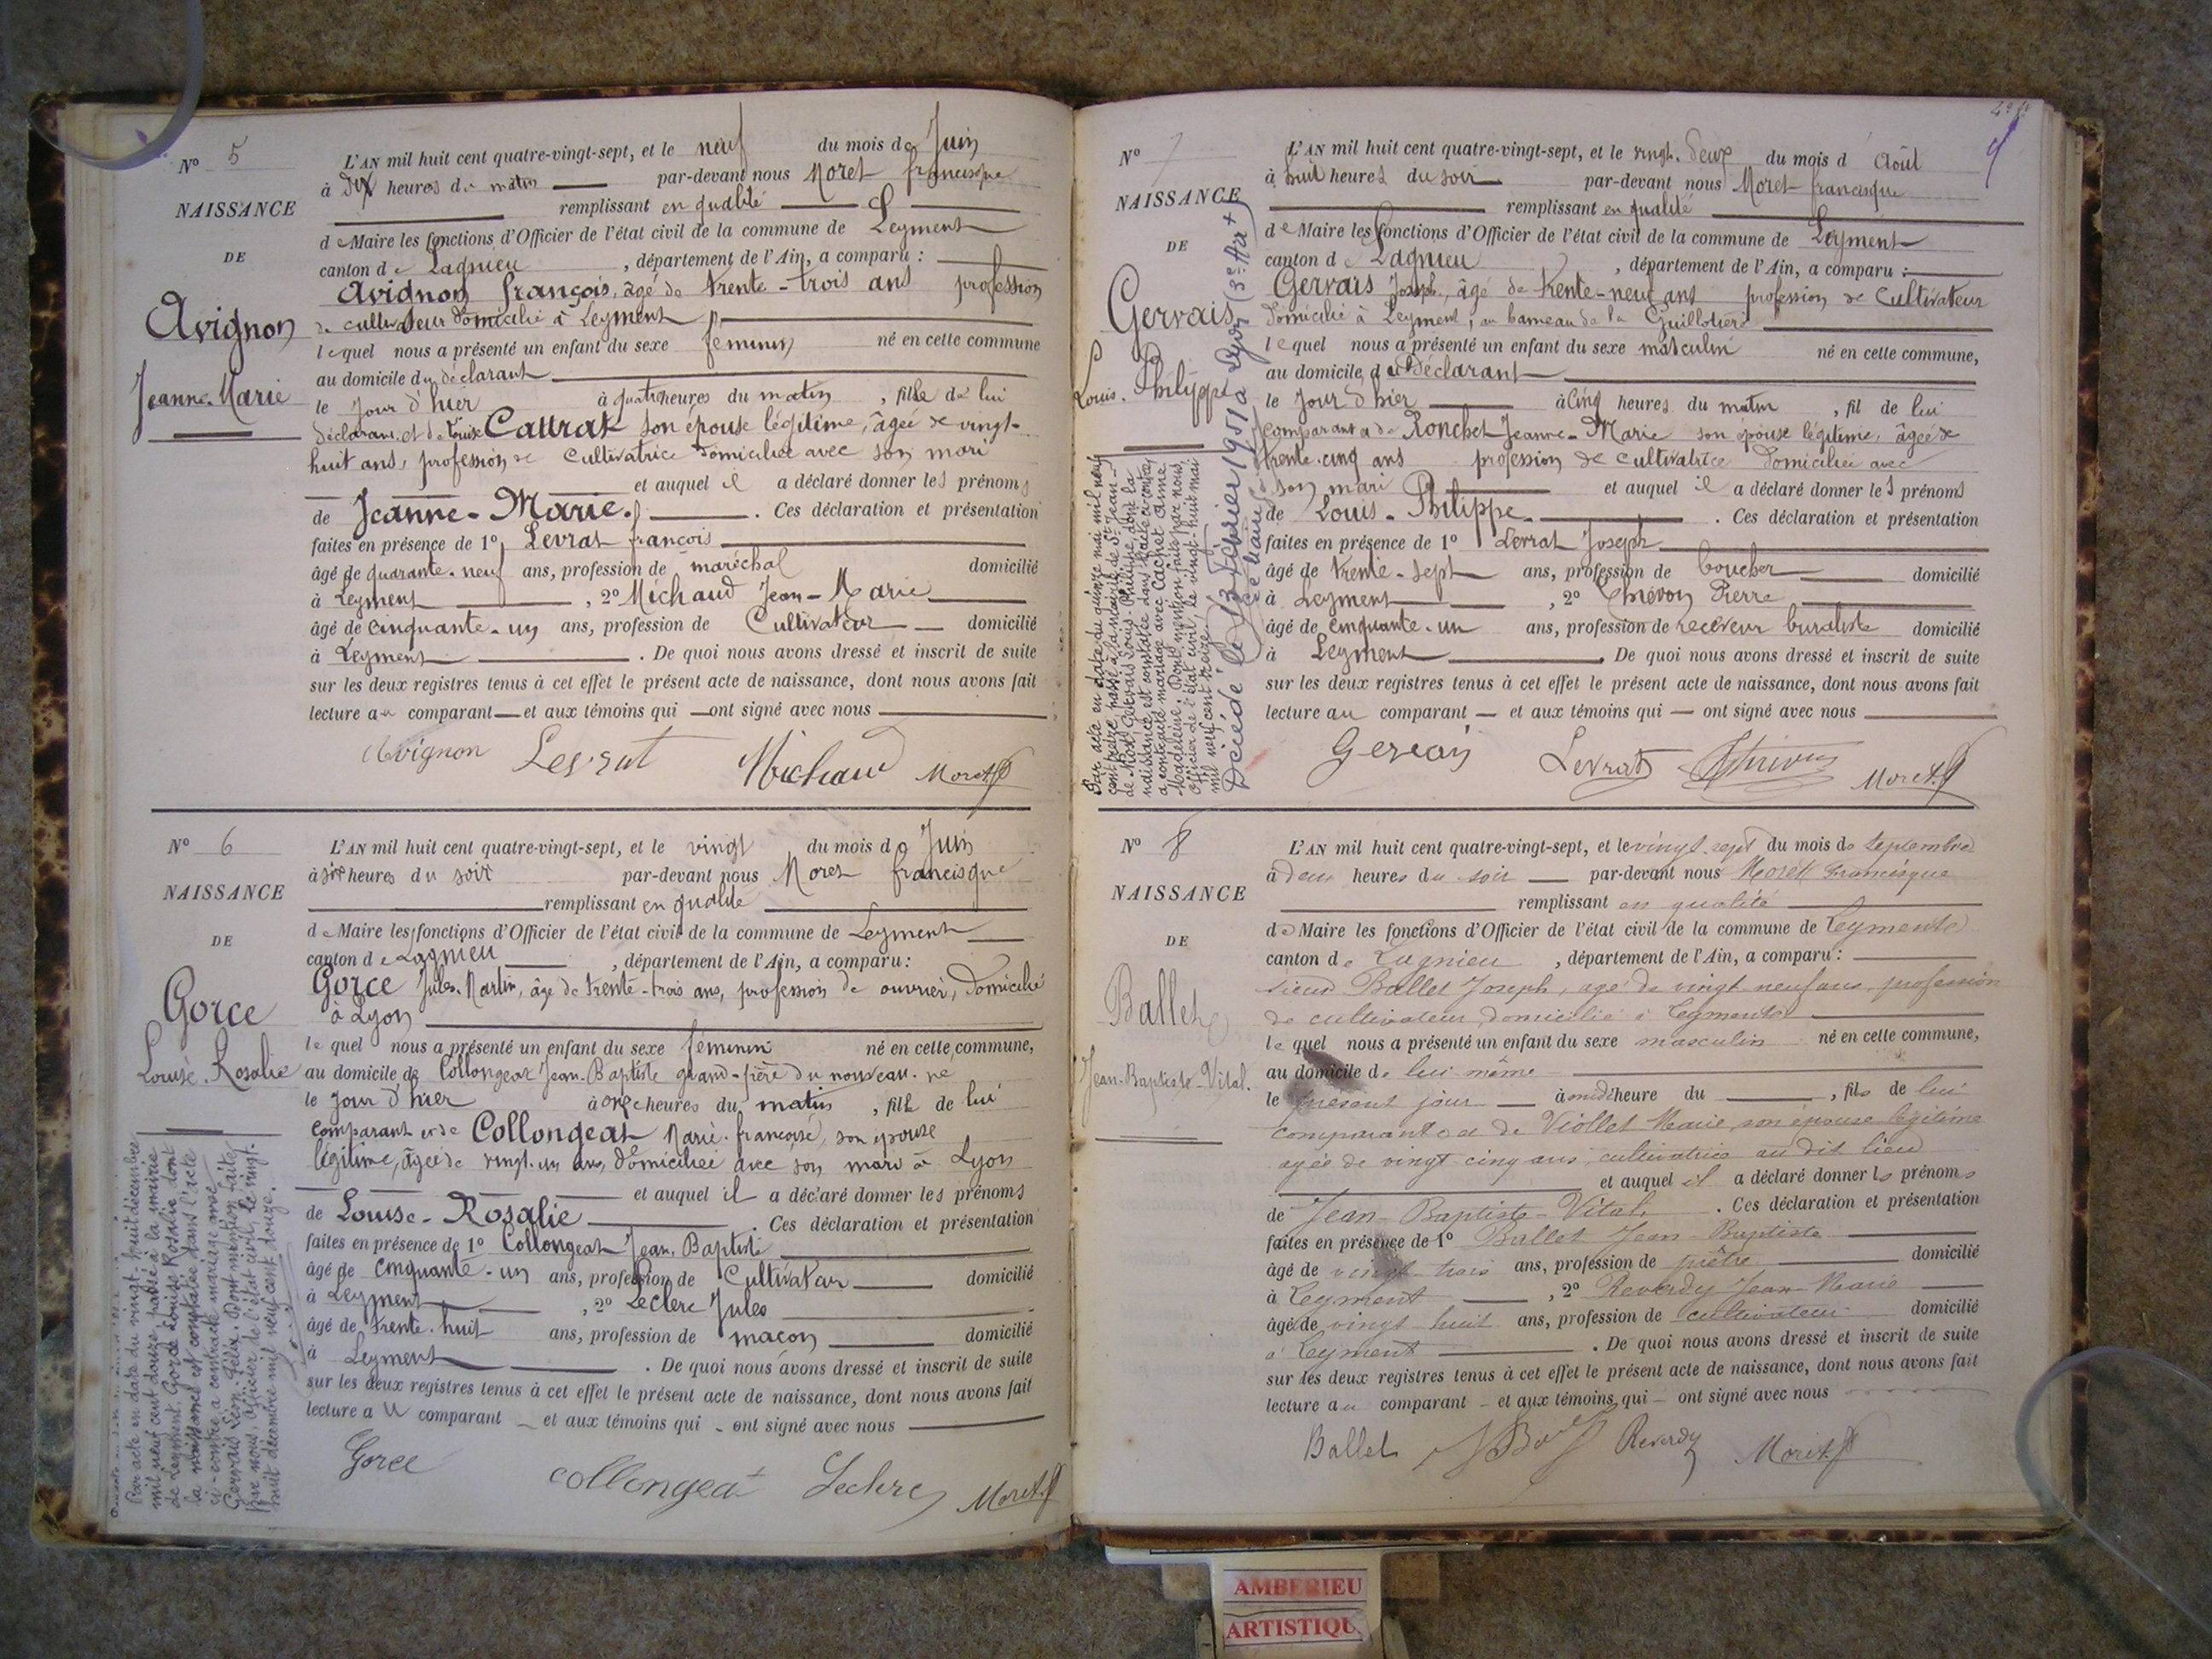 N° 5
NAISSANCE
DE
Avignon
Jeanne-Marie
L'AN mil huit cent quatre-vingt-sept, et le neuf du mois de Juin
à dix heures du matin par-devant nous Moret francisque
remplissant en qualité
de Maire les fonctions d'Officier de l'état civil de la commune de Leyment
canton de Lagnieu, département de l'Ain, a comparu :
Avignon françois, âgé de trente-trois ans profession
de cultivateur domicilié à Leyment
lequel nous a présenté un enfant du sexe féminin né en cette commune
au domicile du déclarant
le jour d'hier à quatre heures du matin, fille de lui
déclarant et de Louise Cattrat son épouse légitime, âgée de vingt-
huit ans, profession de cultivatrice domiciliée avec son mari
et auquel il a déclaré donner les prénoms
de Jeanne-Marie. Ces déclaration et présentation
faites en présence de 1° Levrat françois
âgé de quarante-neuf ans, profession de maréchal domicilié
à Leyment, 2° Michaud Jean-Marie
âgé de cinquante-un ans, profession de Cultivateur domicilié
à Leyment. De quoi nous avons dressé et inscrit de suite
sur les deux registres tenus à cet effet le présent acte de naissance, dont nous avons fait
lecture au comparant et aux témoins qui ont signé avec nous
Avignon Levrat Michaud Moret f
N° 6
NAISSANCE
DE
Gorce
Louise-Rosalie
L'AN mil huit cent quatre-vingt-sept, et le vingt du mois de Juin
à six heures du soir par-devant nous Moret francisque
remplissant en qualité
de Maire les fonctions d'Officier de l'état civil de la commune de Leyment
canton de Lagnieu, département de l'Ain, a comparu :
Gorce Jules-Martin, âgé de trente-trois ans, profession de ouvrier, domicilié
à Lyon
lequel nous a présenté un enfant du sexe féminin né en cette commune,
au domicile de Collongeat Jean-Baptiste grand-père du nouveau-né
le jour d'hier à onze heures du matin, fille de lui
comparant et de Collongeat Marie-françoise, son épouse
légitime, âgée de vingt-un ans, domiciliée avec son mari à Lyon
et auquel il a déclaré donner les prénoms
de Louise-Rosalie. Ces déclaration et présentation
faites en présence de 1° Collongeat Jean-Baptiste
âgé de cinquante-un ans, profession de Cultivateur domicilié
à Leyment, 2° Leclerc Jules
âgé de trente-huit ans, profession de maçon domicilié
à Leyment. De quoi nous avons dressé et inscrit de suite
sur les deux registres tenus à cet effet le présent acte de naissance, dont nous avons fait
lecture au comparant et aux témoins qui ont signé avec nous
Gorce Collongeat Leclerc Moret f
Par acte en date du vingt-huit décembre
mil neuf cent douze, passé à la mairie
de Leyment, Gorce Louise Rosalie dont
la naissance est constatée dans l'acte
ci-contre a contracté mariage avec
Gervais Léon Félix. Dont mention faite
par nous officier de l'état civil, le vingt-
huit décembre mil neuf cent douze.
N° 7
NAISSANCE
DE
Gervais
Louis-Philippe
L'AN mil huit cent quatre-vingt-sept, et le vingt-deux du mois d Août
à huit heures du soir par-devant nous Moret francisque
remplissant en qualité
de Maire les fonctions d'Officier de l'état civil de la commune de Leyment
canton de Lagnieu, département de l'Ain, a comparu :
Gervais Joseph, âgé de trente-neuf ans profession de Cultivateur
domicilié à Leyment, au hameau de la Guillotière
lequel nous a présenté un enfant du sexe masculin né en cette commune,
au domicile du déclarant
le jour d'hier à cinq heures du matin, fil de lui
comparant et de Ronchet Jeanne-Marie son épouse légitime, âgée de
trente-cinq ans profession de cultivatrice domiciliée avec
son mari et auquel il a déclaré donner les prénoms
de Louis-Philippe. Ces déclaration et présentation
faites en présence de 1° Levrat Joseph
âgé de trente-sept ans, profession de boucher domicilié
à Leyment, 2° Pierre
âgé de cinquante-un ans, profession de receveur buraliste domicilié
à Leyment. De quoi nous avons dressé et inscrit de suite
sur les deux registres tenus à cet effet le présent acte de naissance, dont nous avons fait
lecture au comparant et aux témoins qui ont signé avec nous
Gervais Levrat Moret f
Par acte en date du quinze mai mil neuf
cent treize, passé à la mairie de St Jean-
de Gervais Louis-Philippe, dont la
naissance est constatée dans l'acte ci-contre,
a contracté mariage avec Cachet Anne
Madeleine. Dont mention faite par nous,
officier de l'état civil, le vingt-huit mai
mil neuf cent treize.
Décédé le 13 février 1951 à Lyon (3e Arr)
N° 8
NAISSANCE
DE
Ballet
Jean-Baptiste-Vital.
L'AN mil huit cent quatre-vingt-sept, et le vingt-sept du mois de Septembre
à deux heures du soir par-devant nous Morett Francisque
remplissant en qualité
de Maire les fonctions d'Officier de l'état civil de la commune de Leyment
canton de Lagnieu, département de l'Ain, a comparu :
sieur Ballet Joseph, agé de vingt neuf ans, profession
de cultivateur, domicilié à Leyment
lequel nous a présenté un enfant du sexe masculin né en cette commune,
au domicile de lui même
le présent jour à midi heure du, fils de lui
comparant et de Viollet Marie, son épouse légitime
agée de vingt-cinq ans, cultivatrice au dit lieu
et auquel il a déclaré donner les prénoms
de Jean-Baptiste-Vital. Ces déclaration et présentation
faites en présence de 1° Ballet Jean Baptiste
âgé de vingt-trois ans, profession de prêtre domicilié
à Leyment, 2° Reverdy Jean-Marie
âgé de vingt huit ans, profession de cultivateur domicilié
à Leyment. De quoi nous avons dressé et inscrit de suite
sur les deux registres tenus à cet effet le présent acte de naissance, dont nous avons fait
lecture au comparant et aux témoins qui ont signé avec nous
Ballet Reverdy Moret f
AMBERIEU
ARTISTIQU